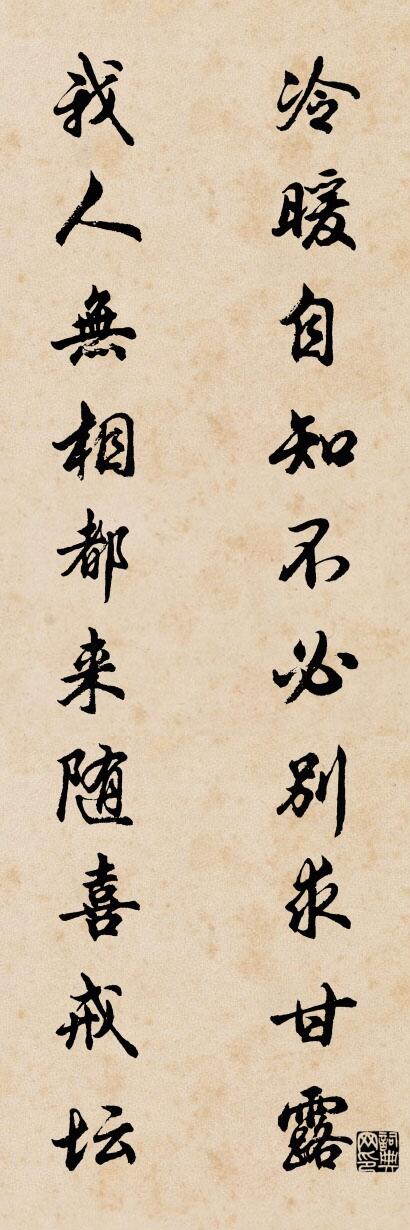 冷暖自知不必别求甘露
我人無相都来随喜戒坛
詞典网印